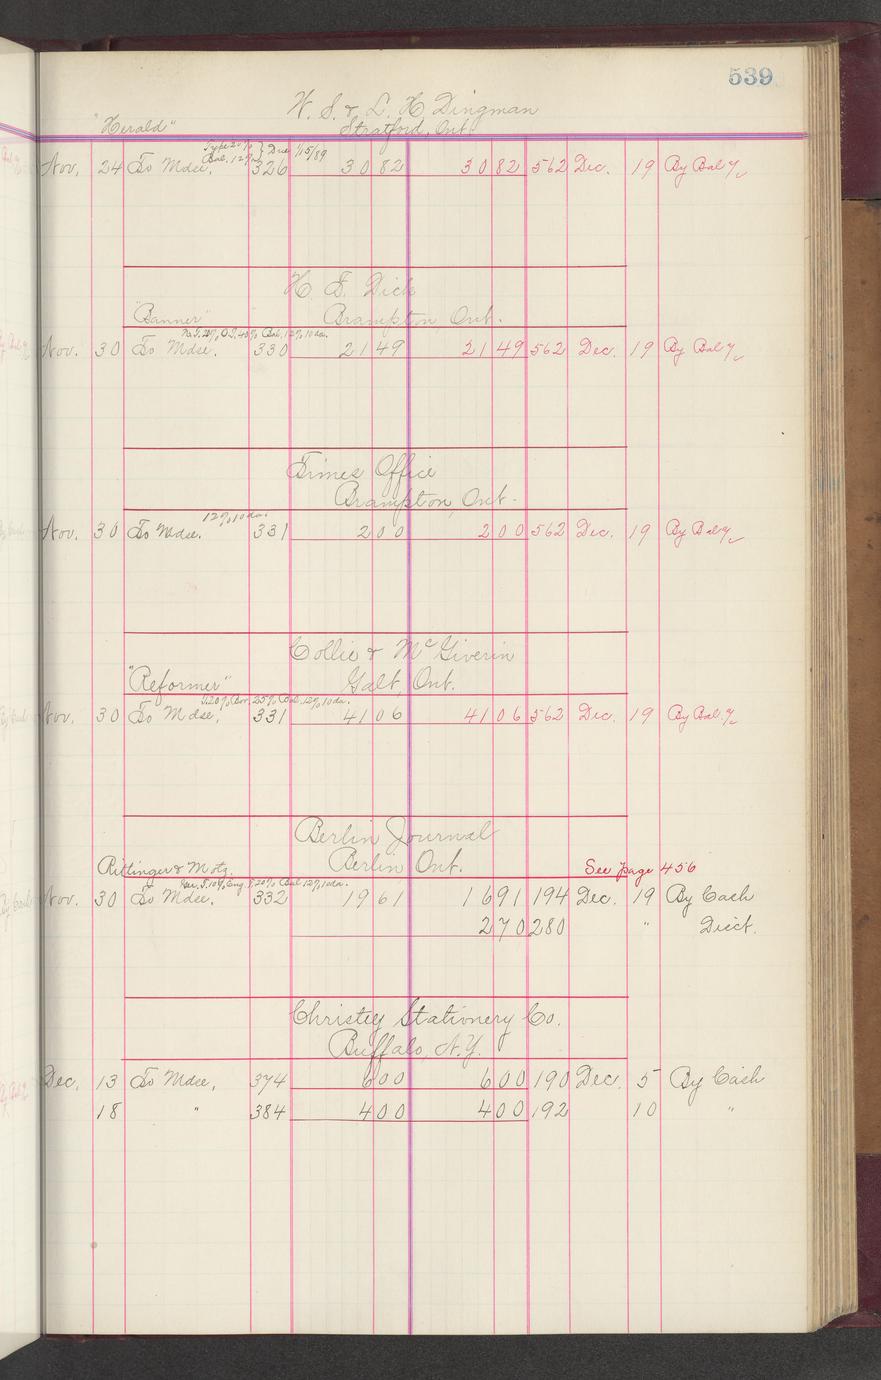 539
W. S. & L. H. Dingman
"Herald" Stratford, Ont.
Type 20% } Due 1/15/89
Bal. 12%
Nov. 24 To Mdse. 326 30 82 30 82 562 Dec. 19 By Bal %
H. F. Dick
"Banner" Brampton, Ont.
20% O.T. 40% Bal. 12% 10 da.
Nov. 30 To Mdse. 330 21 49 21 49 562 Dec. 19 By Bal %
Times Office
Brampton, Ont.
12% 10 da.
Nov. 30 To Mdse. 331 2 00 2 00 562 Dec. 19 By Bal %
Collie & McGiverin
"Reformer" Galt, Ont.
20% Bor. 25% Bal. 12% 10 da.
Nov. 30 To Mdse. 331 41 06 41 06 562 Dec. 19 By Bal. %
Berlin Journal
Rittinger & Motz. Berlin Ont. See page 456
10% Eng. T. 20% Bal 12% 10 da.
Nov. 30 To Mdse. 332 19 61 16 91 194 Dec. 19 By Cash
2 70 280 " Disct.
Christey Stationery Co.
Buffalo, N.Y.
Dec. 13 To Mdse, 374 6 00 6 00 190 Dec. 5 By Cash
18 " 384 4 00 4 00 192 10 "